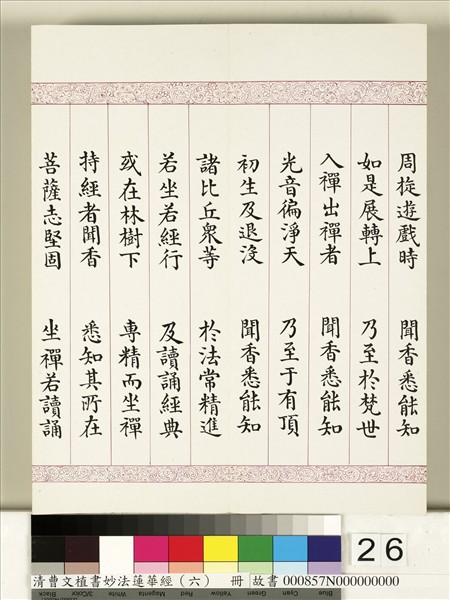 周旋遊戲時　聞香悉能知
如是展轉上　乃至於梵世
入禪出禪者　聞香悉能知
光音徧淨天　乃至于有頂
初生及退沒　聞香悉能知
諸比丘眾等　於法常精進
若坐若經行　及讀誦經典
或在林樹下　專精而坐禪
持經者聞香　悉知其所在
菩薩志堅固　坐禪若讀誦
26
清曹文植書妙法蓮華經（六）　冊　故書 000857N000000000
Black 3/Color White Magenta Red Yellow Green Cyan Blue